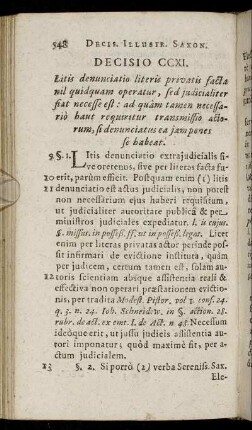 548 DECIS. ILLUSTR. SAXON.
DECISIO CCXI.
Litis denunciatio literis privatis facta
nil quidquam operatur, sed judicialiter
fiat necesse est: ad quam tamen necessa-
riò haut requiritur transmissio acto-
rum, si denunciatus ea jam penes
se habeat.
9 §. 1. Litis denunciatio extrajudicialis si-
ve oretenus, sive per literas facta fu-
10 erit, parùm efficit. Postquam enim (1) litis
11 denunciatio est actus judicialis, non potest
non necessarium ejus haberi requisitum,
ut judicialiter autoritate publicâ & per
ministros judiciales expediatur. l. is cujus.
§. missus. in possess. ff. ut in possess. legat. Licet
enim per literas privatas actor perinde pos-
sit infirmari de evictione institura, quàm
per judicem, certum tamen est, solam au-
12 toris scientiam absque assistentia reali &
effectiva non operari præstationem evictio-
nis, per tradita Modest. Pistor. vol. 1. cons. 24.
q. 5. n. 24. Joh. Schneidew. in §. action. 28.
rubr. de act. ex emt. l. de Act. n. 45. Necessum
ideòque erit, ut jussu judicis assistentia au-
tori imponatur; quòd maximè fit, per a-
ctum judicialem.
13 §. 2. Si porrò (2) verba Sereniss. Sax.
Ele-